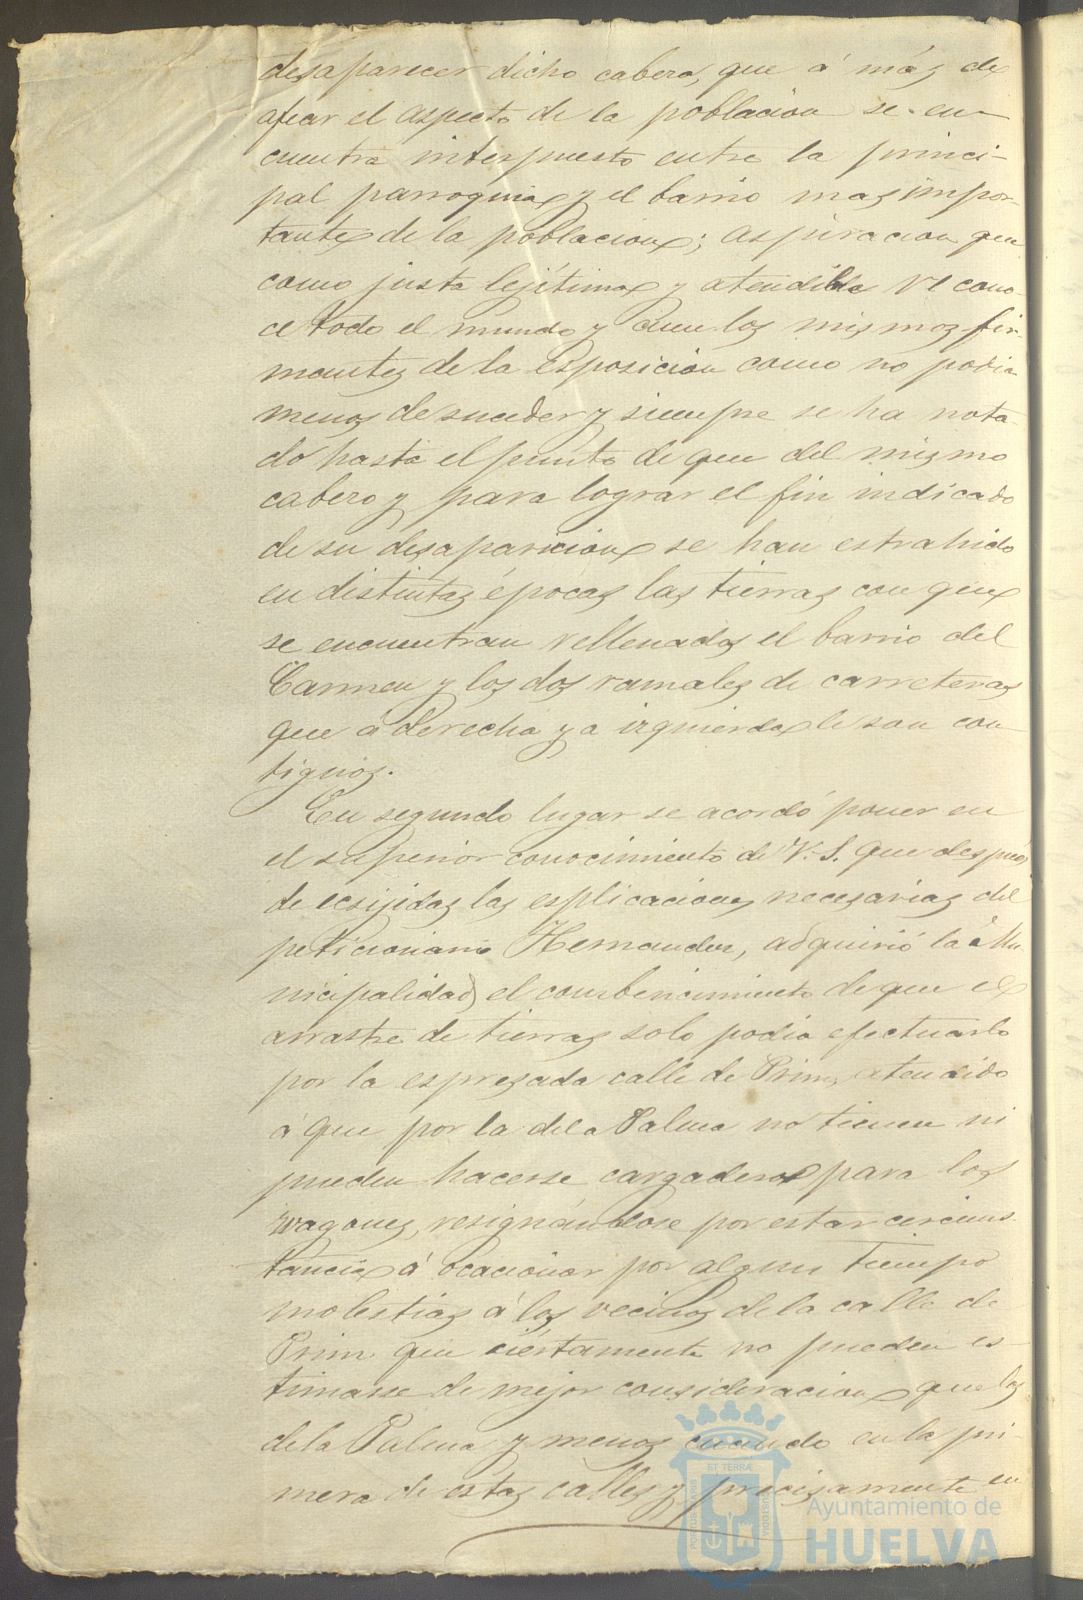 desaparecer dicho cabezo, que á más de
afear el aspecto de la poblacion se en
cuentra interpuesto entre la princi-
pal parroquia y el barrio mas impor
tante de la poblacion; aspiracion que
como justa lejítima y atendible re cono-
ce todo el mundo y aun los mismos fir
mantes de la esposición como no podia
menos de suceder y siempre se ha nota
do hasta el punto de que del mismo
cabezo y para lograr el fin indicado
de su desaparicion se han estrahido
en distintas épocas las tierras con que
se encuentran rellenados el barrio del
Carmen y los dos ramales de carreteras
que á derecha y a izquierda le son con
tiguos.
En segundo lugar se acordó poner en
el superior conocimiento de V.S. que despues
de ecsijidas las esplicaciones necesarias del
peticionario Hernandez, adquirió la Mu
nicipalidad el conbencimiento de que el
arrastre de tierras solo podia efectuarlo
por la espresada calle de Prim, atendido
á que por la de la Palma no tienen ni
pueden hacerse cargaderos para los
wagones, resignándose por estar circuns
tancia á ocacionar por algun tiempo
molestias á los vecinos de la calle de
Prim que ciertamente no pueden es-
timarse de mejor consideracion que los
de la Palma y menos cuando en la pri-
mera de estas calles y precisamente en
ET TERRÆ
PORTUS MARIS
CUSTODIA
Ayuntamiento de
HUELVA